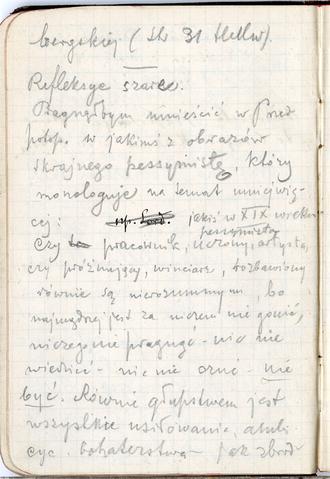 bergskiej ( Str 31 Hellw).
Refleksye szare.
Pragnąłbym umieścić w Przed
potop. w jakimś z obrazów
skrajnego pessymistę, który
monologuje na temat mniejwię-
cej: jakiś w XIX wieku
pessymista
Czy to pracownik, uczony, artysta,
czy próżniujący, winciarz, rozbawiony
równie są nierozumnymi, bo
najmądrzej jest za niczem nie gonić,
niczego nie pragnąć - nic nie
wiedzieć - nic nie czuć - nie
być. Równie głupstwem jest
wszystkie usiłowania, ambi
cye. bohaterstwa - jak zbrod